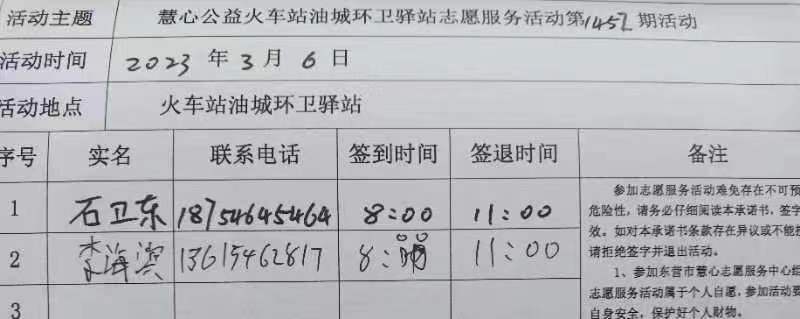 活动主题 慧心公益火车站油城环卫驿站志愿服务活动第1452期活动
活动时间 2023 年 3 月 6 日
活动地点 火车站油城环卫驿站
序号 实名 联系电话 签到时间 签退时间 备注
1 石卫东 18754645464 8:00 11:00
2 李海滨 13615462817 8:00 11:00
3
参加志愿服务活动难免存在不可预
危险性，请务必仔细阅读本承诺书，签字
效。如对本承诺书条款存在异议或不能接
请拒绝签字并退出活动。
1、参加东营市慧心志愿服务中心组
志愿服务活动属于个人自愿，参加活动要
自身安全，保护好个人财物。